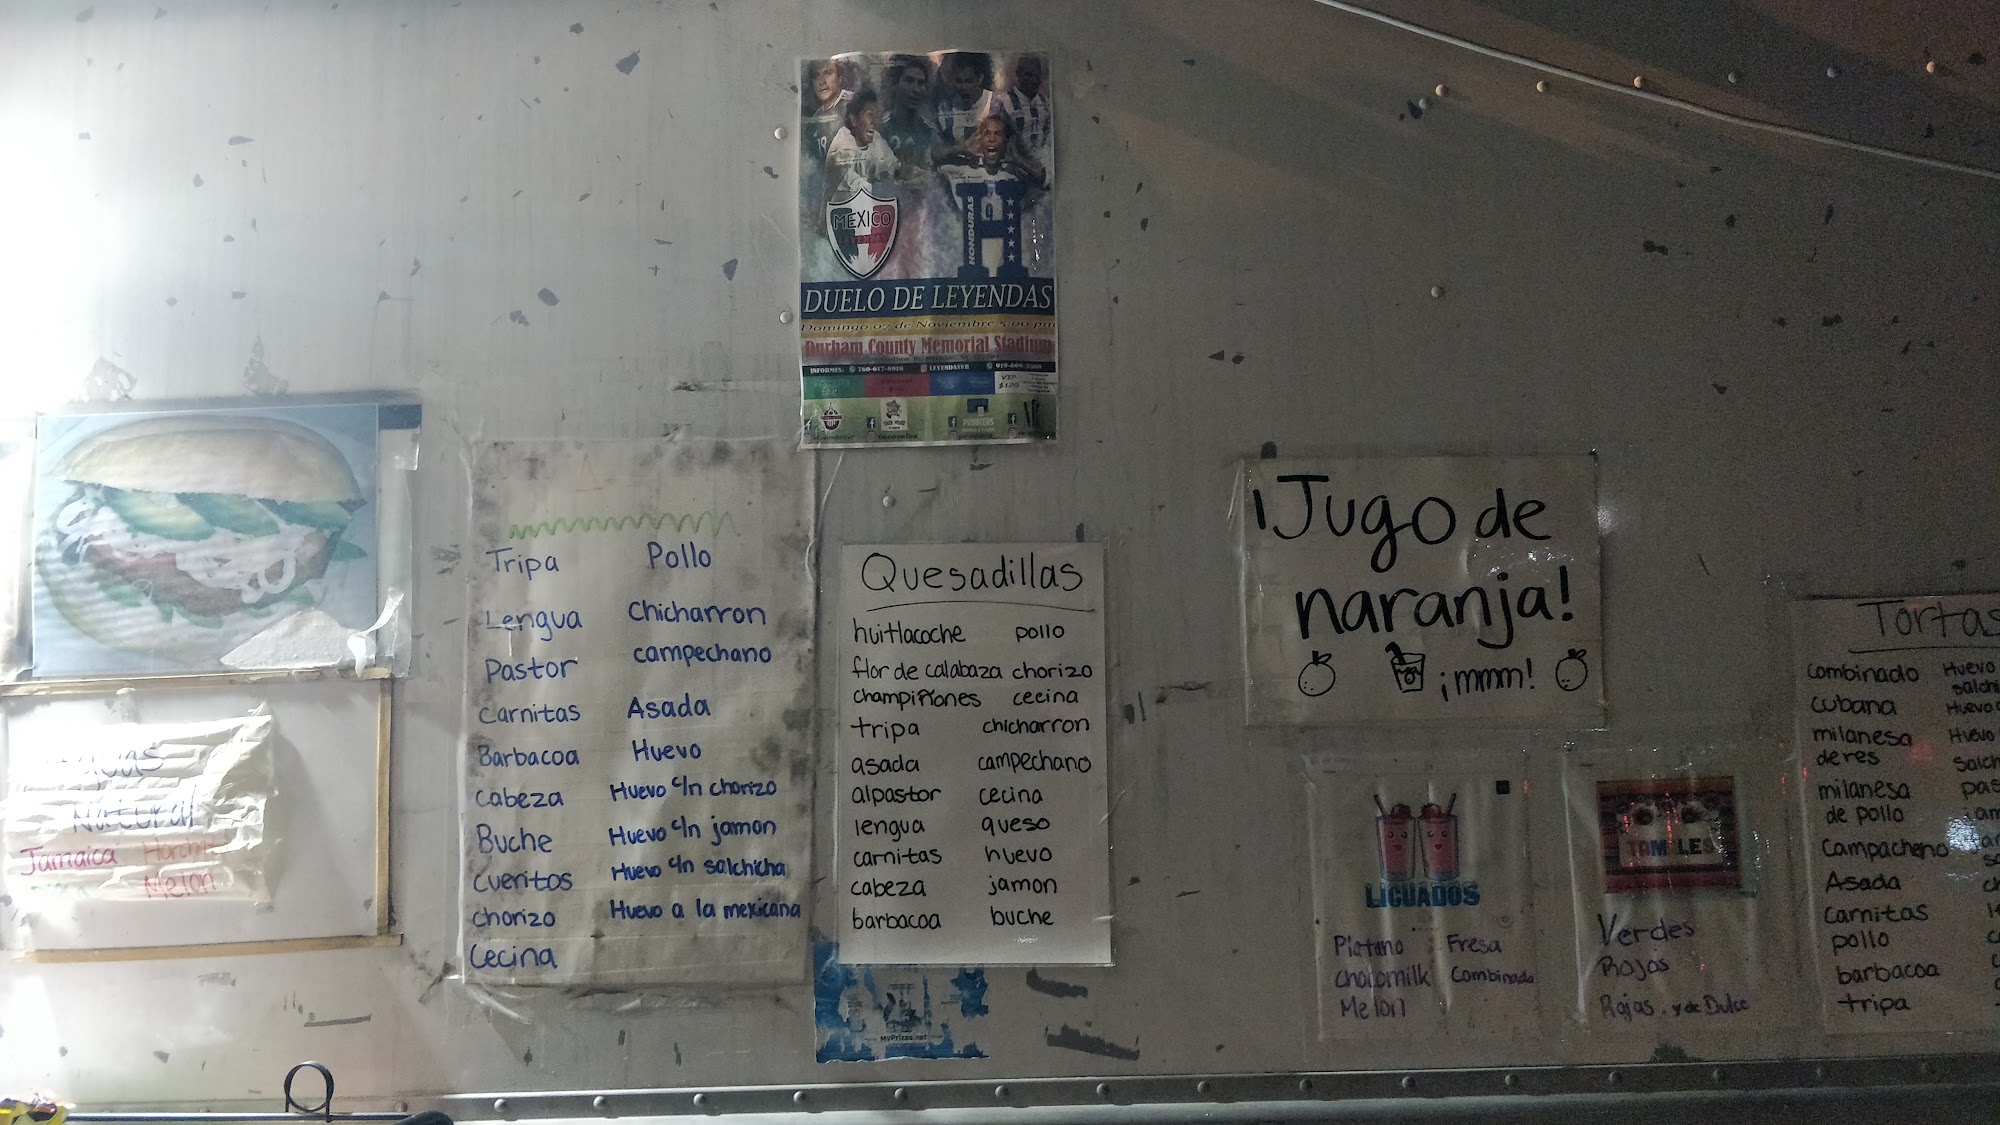 MEXICO
LEYENDAS
HONDURAS
DUELO DE LEYENDAS
Domingo 07 de Noviembre 5:00 pm
Durham County Memorial Stadium
INFORMES: 760-617-8918 LEYENDASVH 919-609-3360
VIP
$120
Tripa Pollo
Lengua Chicharron
Pastor campechano
Carnitas Asada
Barbacoa Huevo
Cabeza Huevo c/n chorizo
Buche Huevo c/n jamon
Cueritos Huevo c/n salchicha
chorizo Huevo a la mexicana
Cecina
Quesadillas
huitlacoche pollo
flor de calabaza chorizo
champiñones cecina
tripa chicharron
asada campechano
alpastor cecina
lengua queso
carnitas huevo
cabeza jamon
barbacoa buche
MyPrizes.net
¡Jugo de
naranja!
¡mmm!
LICUADOS
Platano Fresa
chocomilk Combinado
Melon
TAMALES
Verdes
Rojos
Rajas y de Dulce
Tortas
combinado Huevo
cubana
milanesa Huevo
de res
milanesa
de pollo
Campacheno
Asada
carnitas
pollo
barbacoa
tripa
Aguas
Natural
Jamaica
Melon